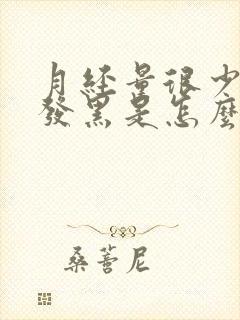 月经量很少
發黑是怎麼
桑蓍尼